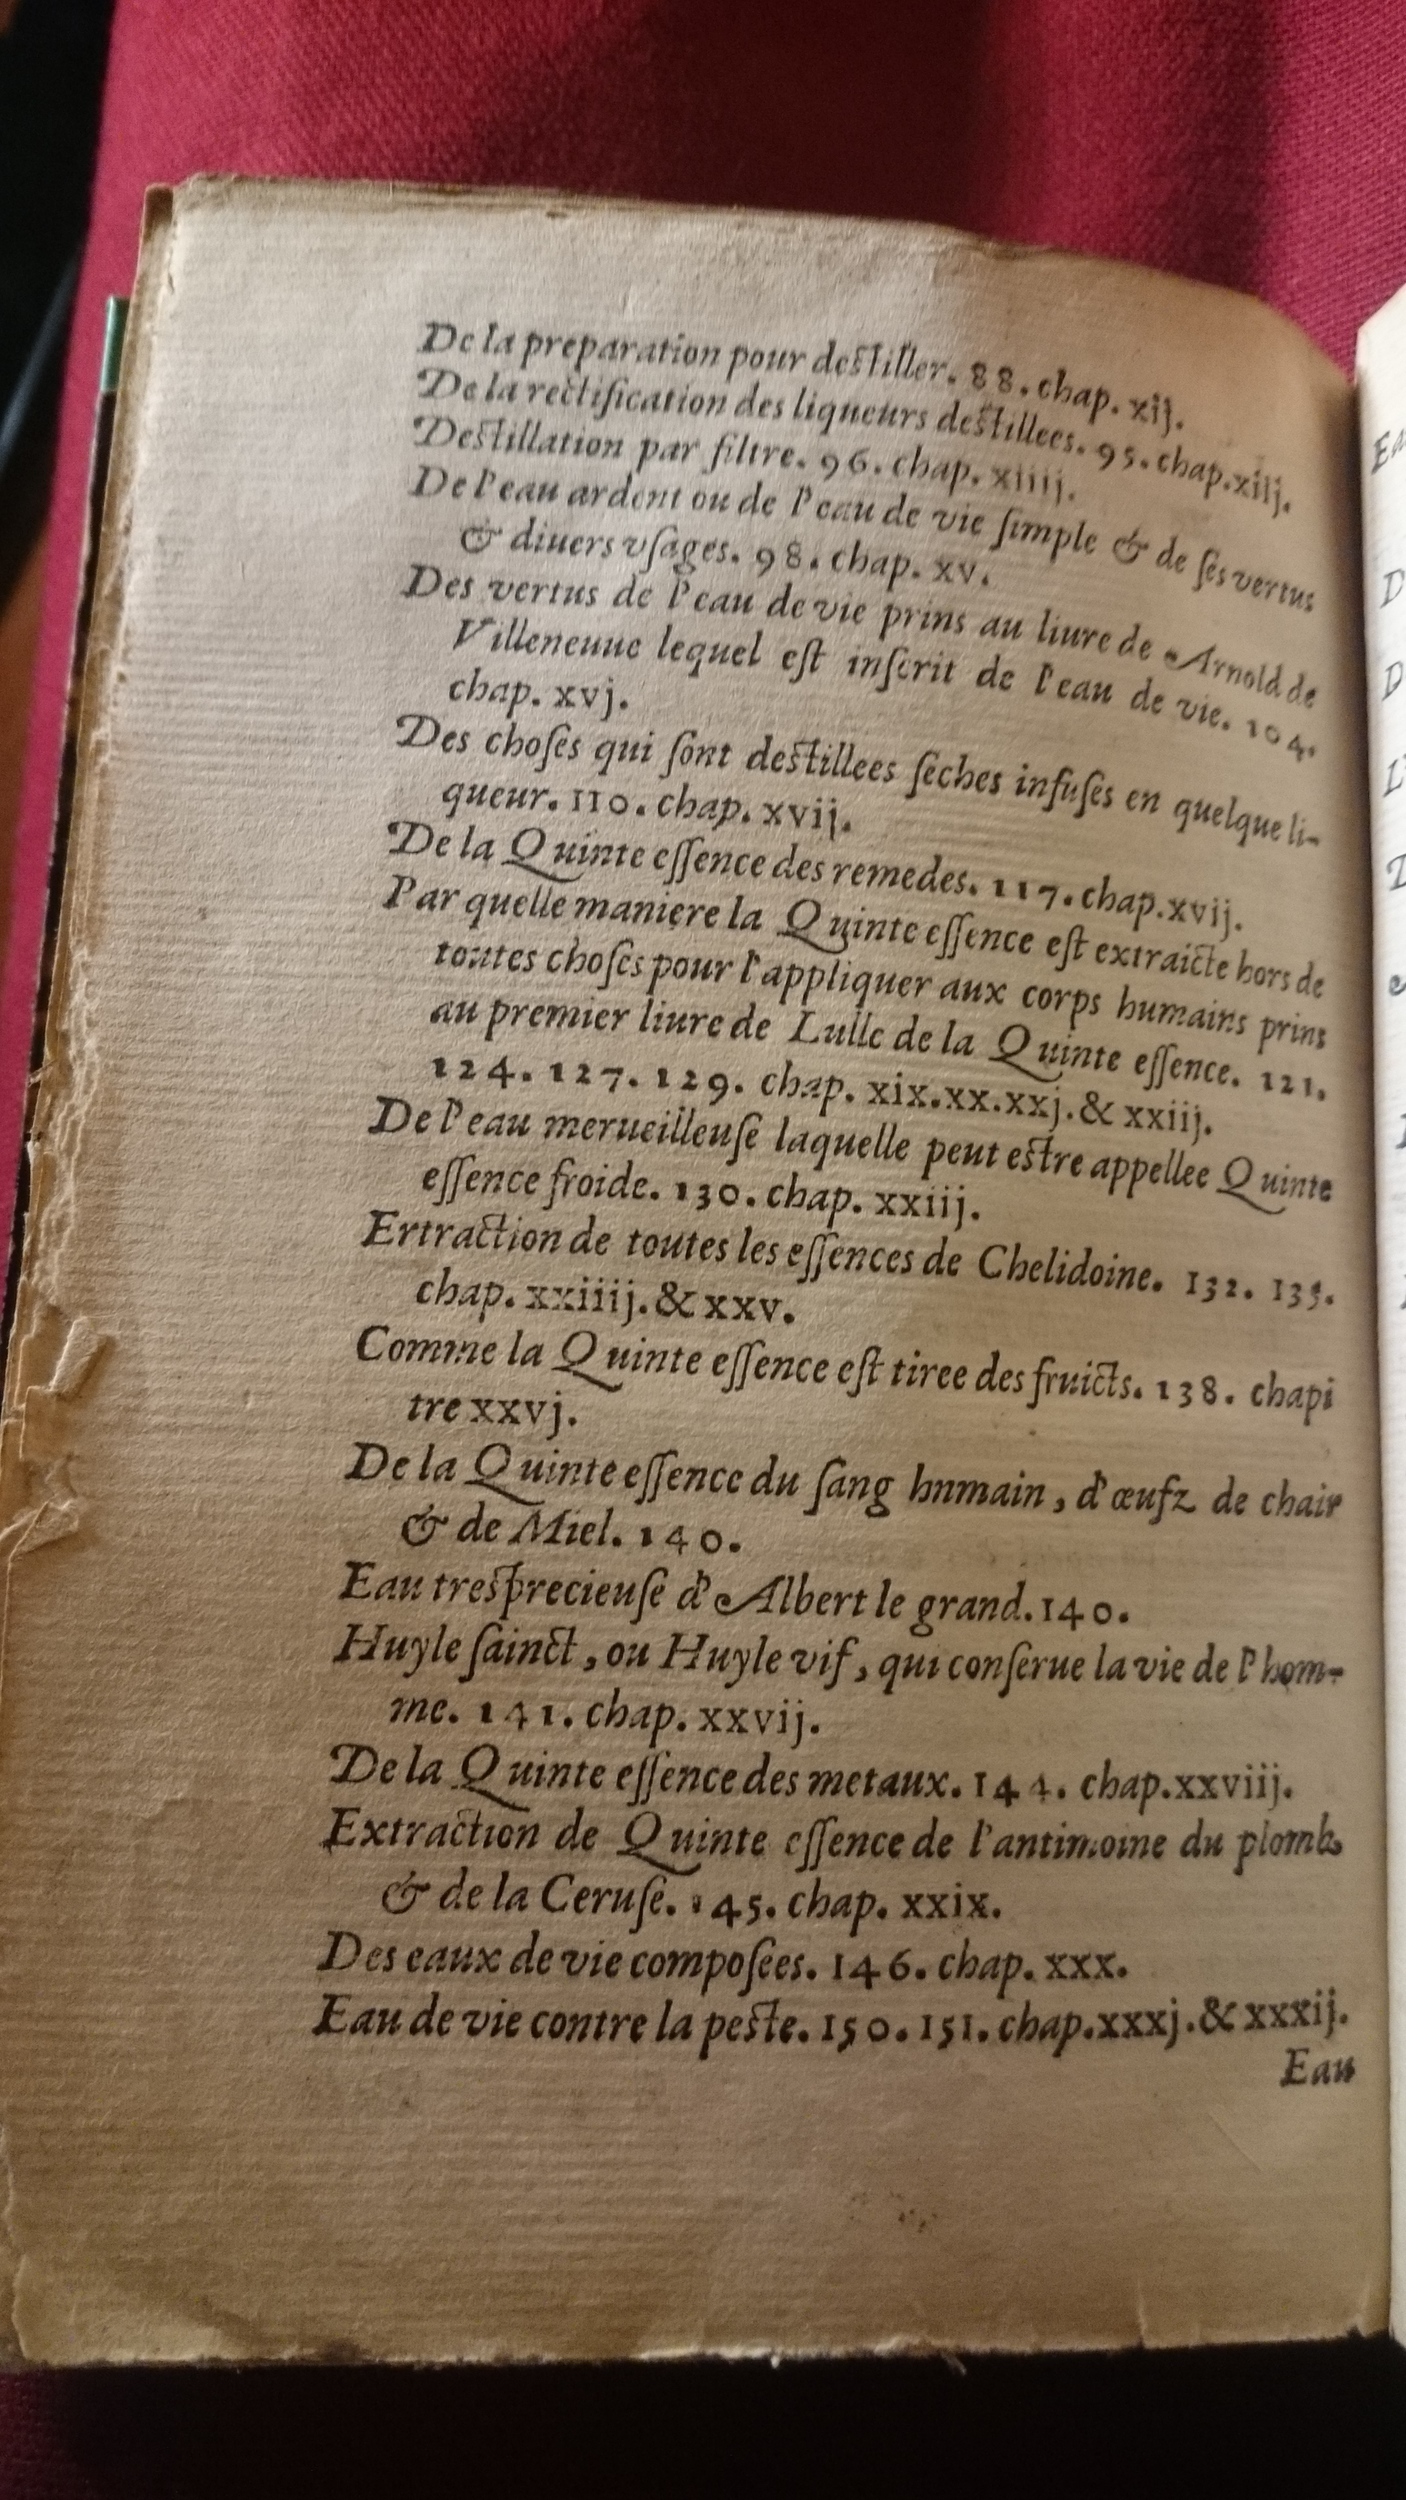 De la preparation pour deſtiller. 88. chap. xij.
De la rectification des liqueurs deſtillees. 95. chap. xiij.
Deſtillation par filtre. 96. chap. xiiij.
De l'eau ardent ou de l'eau de vie ſimple & de ſes vertus
& diuers vſages. 98. chap. xv.
Des vertus de l'eau de vie prins au liure de Arnold de
Villeneuue lequel eſt inſcrit de l'eau de vie. 104.
chap. xvj.
Des choſes qui ſont deſtillees ſeches infuſes en quelque li-
queur. 110. chap. xvij.
De la Quinte eſſence des remedes. 117. chap. xvij.
Par quelle maniere la Quinte eſſence eſt extraicte hors de
toutes choſes pour l'appliquer aux corps humains prins
au premier liure de Lulle de la Quinte eſſence. 121.
124. 127. 129. chap. xix. xx. xxj. & xxiij.
De l'eau merueilleuſe laquelle peut eſtre appellee Quinte
eſſence froide. 130. chap. xxiij.
Ertraction de toutes les eſſences de Chelidoine. 132. 135.
chap. xxiiij. & xxv.
Comme la Quinte eſſence eſt tiree des fruicts. 138. chapi
tre xxvj.
De la Quinte eſſence du ſang hnmain, d'œufz de chair
& de Miel. 140.
Eau treſprecieuſe d'Albert le grand. 140.
Huyle ſainct, ou Huyle vif, qui conſerue la vie de l'hom-
me. 141. chap. xxvij.
De la Quinte eſſence des metaux. 144. chap. xxviij.
Extraction de Quinte eſſence de l'antimoine du plomb
& de la Ceruſe. 145. chap. xxix.
Des eaux de vie compoſees. 146. chap. xxx.
Eau de vie contre la peſte. 150. 151. chap. xxxj. & xxxij.
Eau